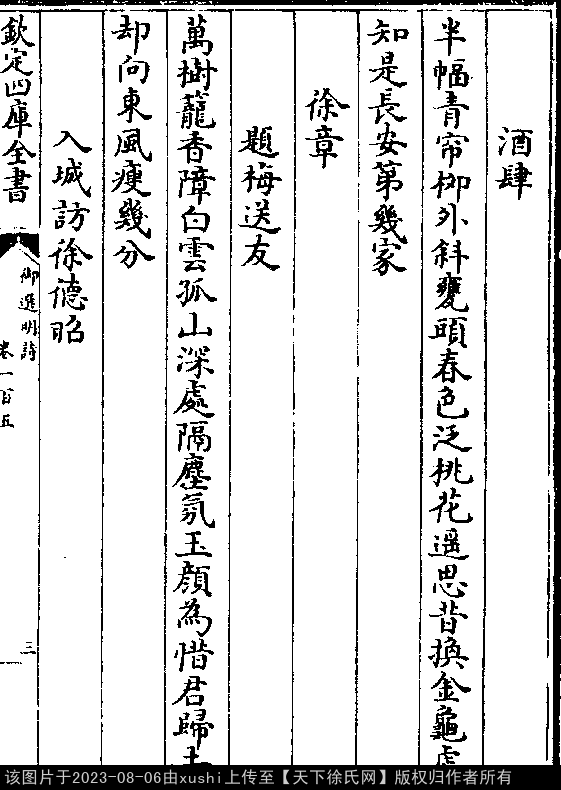 酒肆
半幅青帘柳外斜甕頭春色泛桃花遥思昔換金龜處
知是長安第幾家
徐章
題梅送友
萬樹籠香障白雲孤山深處隔塵氛玉顔為惜君歸去
却向東風瘦幾分
入城訪徐德昭
欽定四庫全書
御選明詩
卷一百五
三
该图片于2023-08-06由xushi上传至【天下徐氏网】版权归作者所有